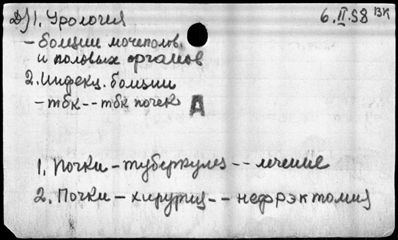 Д) 1. Урология 6.II.58 ВК
- болции мочеполов.
и половых органов
2. Инфекц. болции
- тбк -- тбк почек А
1. Почки - туберкулез -- лечение
2. Почки - хирургия -- нефрэктомия